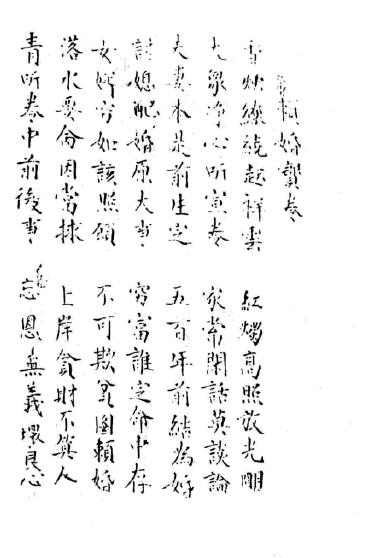 賴婚寶卷
香炊繚繞起祥雲 紅燭高照放光明
大眾净心听宣卷 家常閑話莫談論
夫妻本是前生定 五百年前結為婚
討媳配婚原大事 穷富誰定命中存
女婿穷如該照顧 不可欺貧圖賴婚
落水要命因當捄 上岸貪財不算人
青听卷中前後事 忘恩無義壞良心